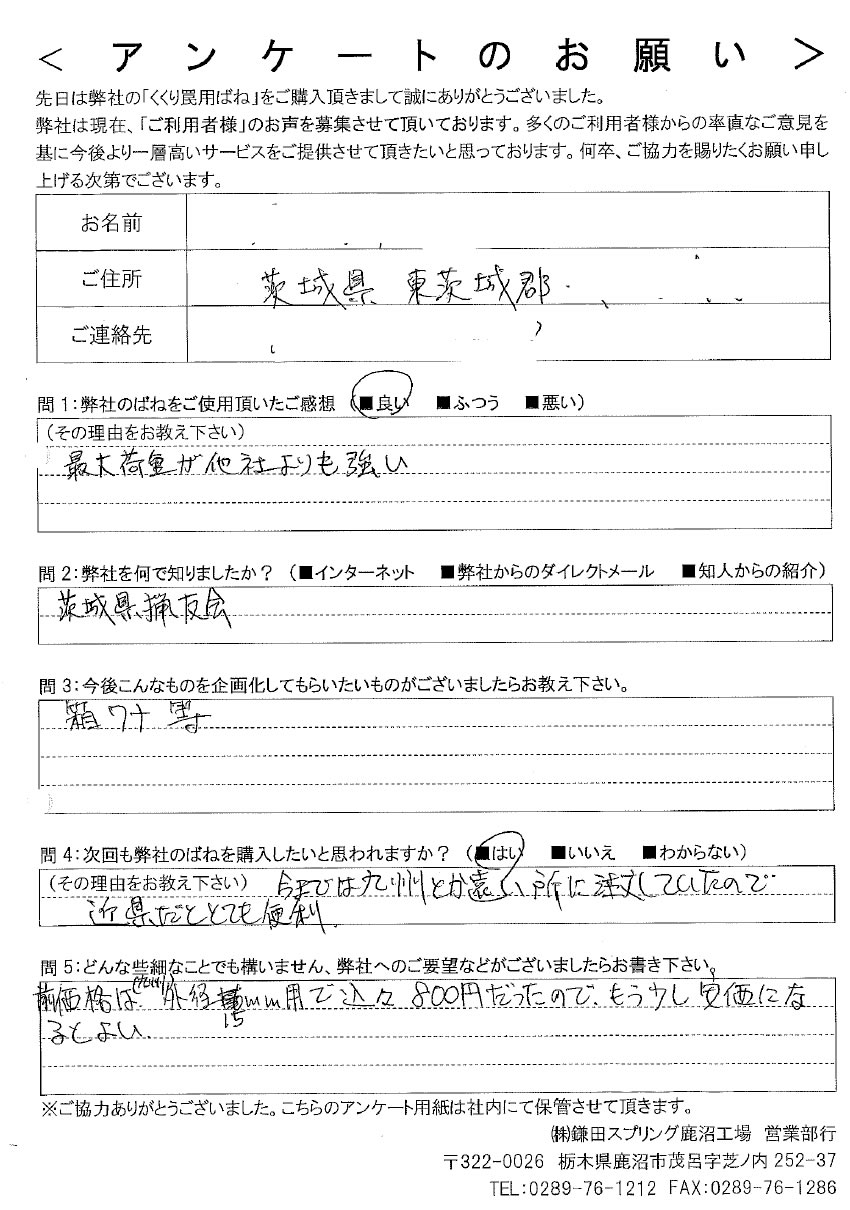 ＜アンケートのお願い＞
先日は弊社の「くくり罠用ばね」をご購入頂きまして誠にありがとうございました。
弊社は現在、「ご利用者様」のお声を募集させて頂いております。多くのご利用者様からの率直なご意見を
基に今後より一層高いサービスをご提供させて頂きたいと思っております。何卒、ご協力を賜りたくお願い申し
上げる次第でございます。
お名前
ご住所 茨城県 東茨城郡
ご連絡先
問1:弊社のばねをご使用頂いたご感想 (■良い ■ふつう ■悪い)
(その理由をお教え下さい)
最大荷重が他社よりも強い
問2:弊社を何で知りましたか? (■インターネット ■弊社からのダイレクトメール ■知人からの紹介)
茨城県猟友会
問3:今後こんなものを企画化してもらいたいものがございましたらお教え下さい。
箱ワナ等
問4:次回も弊社のばねを購入したいと思われますか? (■はい ■いいえ ■わからない)
(その理由をお教え下さい) 今までは九州とか遠い所に注文していたので
近県だととても便利。
問5:どんな些細なことでも構いません、弊社へのご要望などがございましたらお書き下さい。
前価格は 外径15mm用で込々800円だったので、もう少し安価にな
るとよい。
※ご協力ありがとうございました。こちらのアンケート用紙は社内にて保管させて頂きます。
㈱鎌田スプリング鹿沼工場 営業部行
〒322-0026 栃木県鹿沼市茂呂字芝ノ内252-37
TEL:0289-76-1212 FAX:0289-76-1286